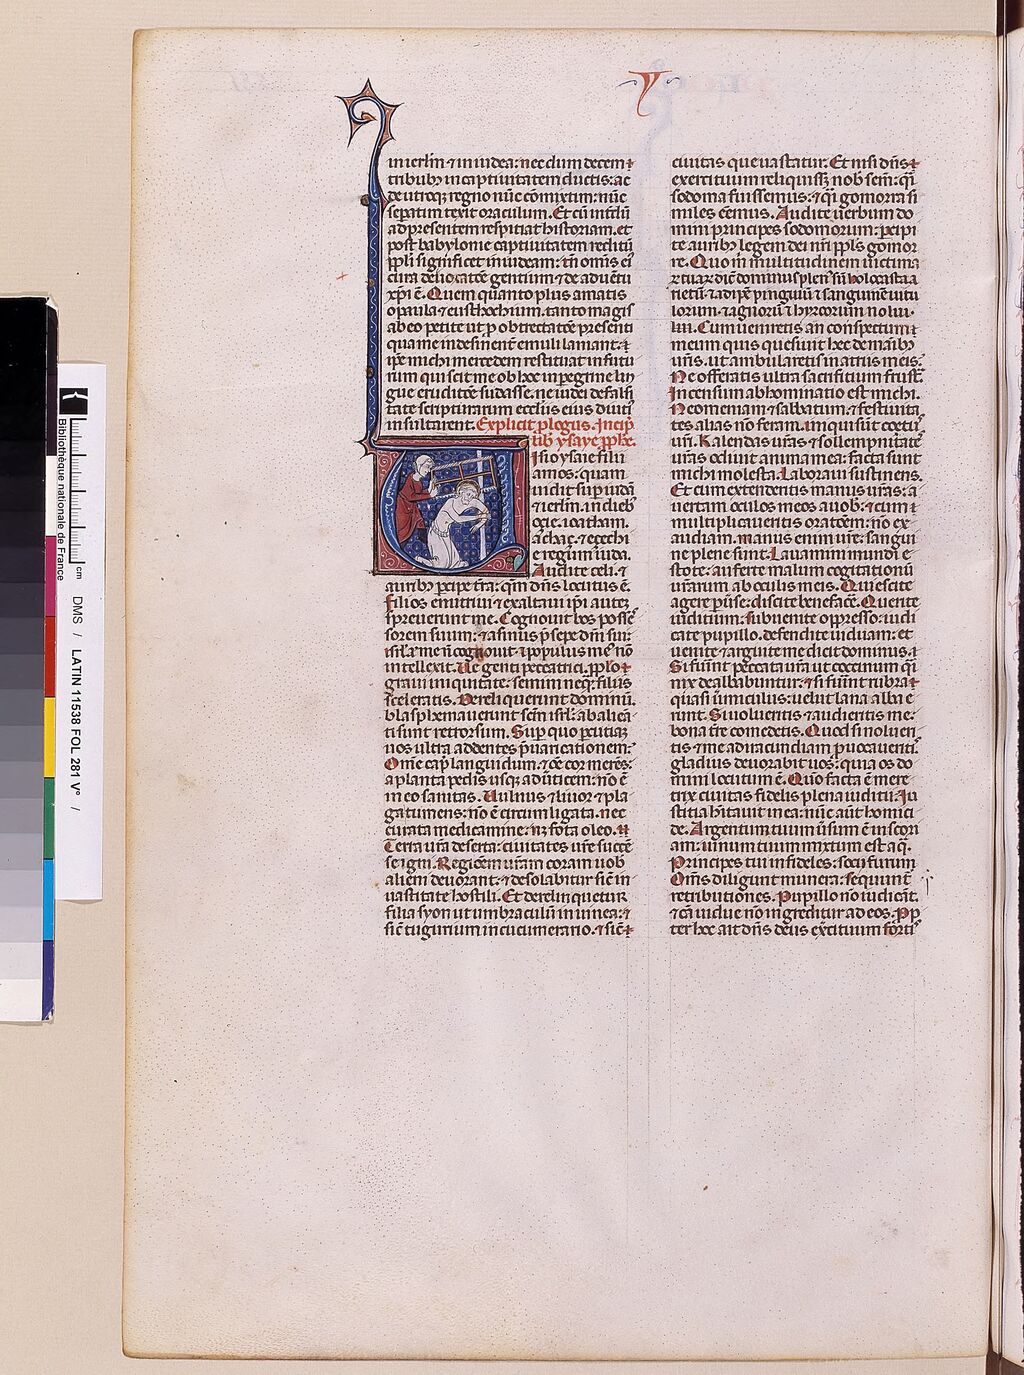 Y
in ierlm ⁊ in iudea: nec dum decem
tribub; in captiuitatem ductis: ac
de utroq; regno nūc cōmixtum: nūc
sepatim texit oraculum. Et cū inthū
ad presentem respiciat historiam. et
post babylonie captiuitatem reditū
ppli significet in iudeam: tn omis ei
cura de uocatōe gentium ⁊ de aduētu
xpi ē. Quem quanto plus amatis
o paula ⁊ eusthochium. tanto magis
ab eo petite ut p obtrectatōe presenti
qua me indesinent emuli lamant: ⁊
ipe michi mercedem restituat in futu
rum qui scit me ob hoc in peregrine lin
gue eruditōe sudasse. ne iudei de falsi
tate scripturarum ecclīis eius diuti
insultarent. Explicit plogus. Incip
lib ysaye pphe.
Uisio ysaie filii
amos: quam
uidit sup iudā
⁊ ierlm. in dieb
ozie. ioatham.
achaz. ⁊ ezechi
e regum iuda.
Audite celi. ⁊
aurib; pcipe tra: qm dns locutus ē.
Filios enutriui ⁊ exaltaui ipi autez
spreuerunt me. Cognouit bos posses
sorem suum: ⁊ asinus psepe dni sui:
isrl me n cognouit. ⁊ populus me nō
intellexit. Ue genti peccatrici. pplo
graui iniquitate. semini neq;. filiis
sceleratis. Dereliquerunt dominū.
blasphemauerunt scm isrl. abaliēa
ti sunt retrorsum. Sup quo pcutiaz
uos ultra addentes puaricationem:
Omē cap languidum. ⁊ oē cor merēs:
a planta pedis usq; ad uticem: nō ē
in eo sanitas. Uulnus ⁊ liuor ⁊ pla
ga tumens: nō ē circumligata. nec
curata medicamine: nz fota oleo.
Terra ura deserta: ciuitates ure succē
se igni. Regiōem uram coram uob
alieni deuorant: ⁊ desolabitur sic in
uastitate hostili. Et derelinquetur
filia syon ut umbraculū in uinea: ⁊
sic tugurium in cucumerario. ⁊ sic
ciuitas que uastatur. Et nisi dns
exercituum reliquiss; nob sem: qi
sodoma fuissemus: ⁊ qi gomorra si
miles eēmus. Audite uerbum do
mini principes sodomorum: pcipi
te aurib; legem dei nri ppls gomor
re. Quo m multitudinem uictima
rietū: ⁊ adipe pinguiū ⁊ sanguinē uitu
lorum. ⁊ agnorū ⁊ hyrcorum nolui.
Cum ueniretis an conspectum
meum quis quesiuit hec de manib;
uris. ut ambularetis in atriis meis.
Ne offeratis ultra sacrifitium frust.
Incensum abhominatio est michi.
Neomeniam ⁊ sabbatum. ⁊ festiuita
tes alias nō feram. iniqui sūt cetus
uri. Kalendas uras ⁊ sollempnitates
uras odiuit anima mea: facta sunt
michi molesta. Laboraui sustinens.
Et cum extendentis manus uras: a
uertam oculos meos a uob: ⁊ cum
multiplicaueritis oratōem: nō ex
audiam. manus enim ure: sangui
ne plene sunt. Lauamini mundi e
stote: auferte malum cogitationū
urarum ab oculis meis. Quiescite
agere puse: discite benefacē. Querite
iuditium: subuenite oppresso: iudi
cate pupillo. defendite uiduam: et
uenite ⁊ arguite me dicit dominus.
Si fuint peccata ura ut coccinum qi
nix dealbabuntur: ⁊ si fuint rubra
quasi umiculus: uelut lana alba e
runt. Si uolueritis ⁊ audieritis me:
bona tre comedetis. Quod si nolueri
tis ⁊ me ad iracundiam puocaueriti:
gladius deuorabit uos: quia os do
mini locutum ē. Quō facta ē mere
trix ciuitas fidelis plena iuditii. Iu
stitia hitauit in ea: nūc aūt homici
de. Argentum tuum usum ē in scori
am: uinum tuum mixtum est aq.
Principes tui infideles: socii furum
Oms diligunt munera: sequunt
retributiones. Pupillo nō iudicāt.
⁊ cā uidue nō ingreditur ad eos. Pp
ter hoc ait dns deus exercituum forti
Bibliothèque nationale de France
cm
DMS / LATIN 11538 FOL 281 V° /